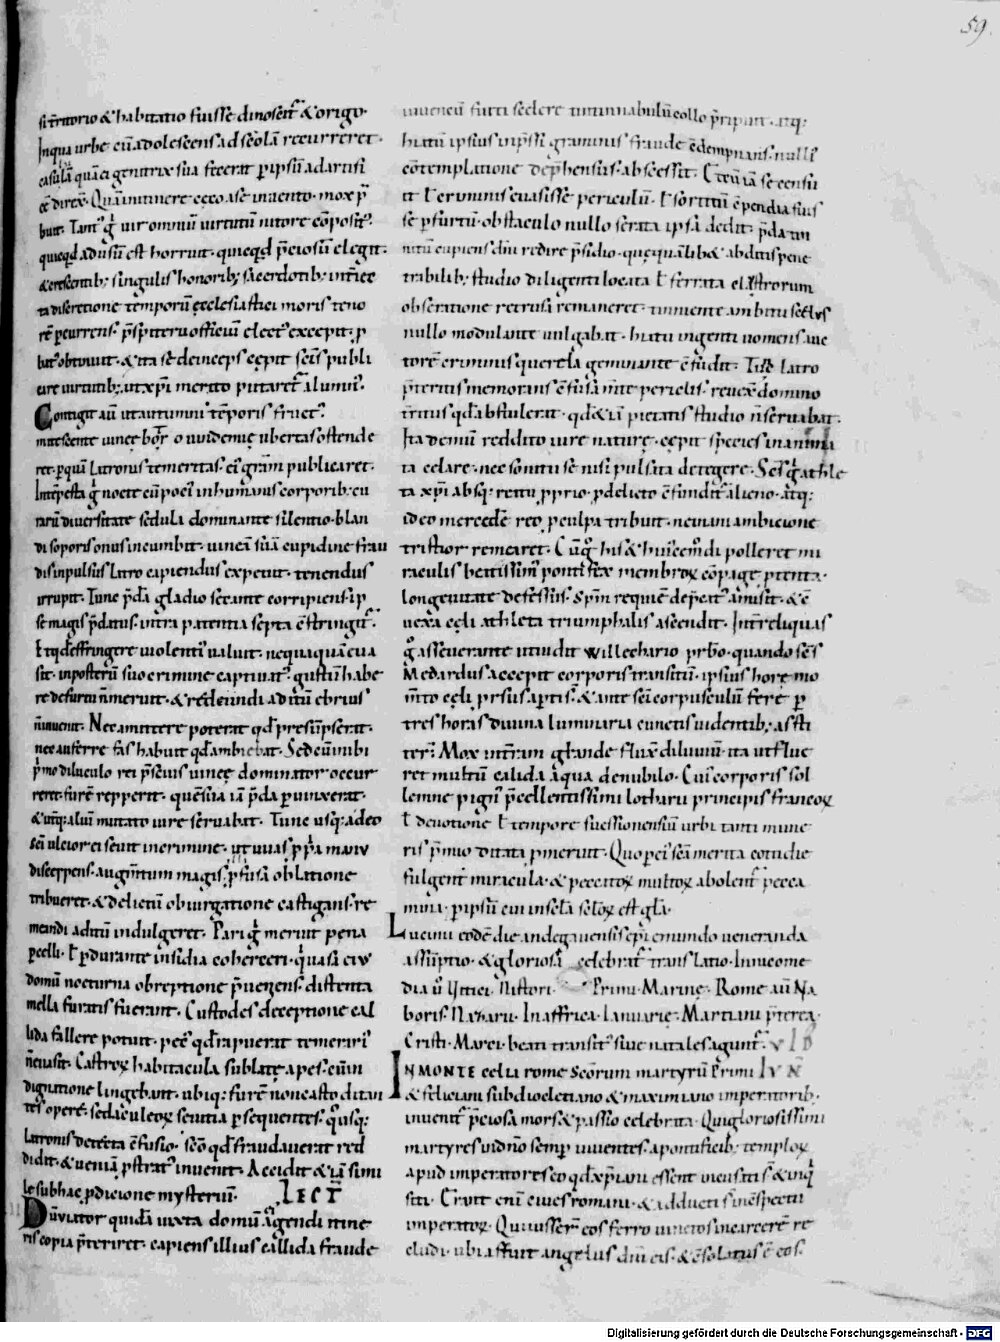 59.
si territorio & habitatio fuisse dinoscit̄ & origo·
Inqua urbe cū adolescens ad scolā recurreret·
casulā quā ei genitrix sua fecerat p ipsū ad artifi
cē direx̄· Quā initinere ceco a se inuento· mox p̄
buit· Tant᷒ g̊ uir omniū uirtutū nitore cōposit᷒·
quicqd̄ adusum est horruit· quicqd̄ p̄ciosum elegit·
& crescentib; singulis honorib; sacerdotib; int̄ iec
ta discretione temporū ęcclesiastici moris teno
rē pcurrens· p̄sbiteri officiū elect᷒ excepit· p
bat᷒ obtinuit· & ita sē deinceps cępit sc̄is publi
care uirtutib; ut xp̄i merito putaret̄ alumn᷒·
Contigit aū ut autumni tēporis fruct᷒
mitescente uineę bot̄ ouuidemię ubertas ostende
ret· p quā latronis temeritas· ei᷒ grām publicaret·
Intēpesta g̊ nocte cū poci᷒ inhumanis corporib; cu
rarū diuersitate sedula dominante silentio· blan
di soporis onus incumbit· uineā suā cupidine frau
dis inpulsus latro capiendus expetiit· tenendus
irrupit· Tunc p̄dā gladio secante corripiens· ip
se magis p̄datus· intra patentia septa cōstringit̄·
Et qd̄ effringere uiolenti᷒ ualuit· nequiquā eua
sit· inposterū suo crimine captiuat᷒· gustū habe
re de furtu n̄ meruit· & redeundi aditū ebrius
n̄ inuenit· Nec amittere poterat qd̄ presūpserat·
nec auferre fas habuit qd̄ ambiebat· Sed cū ubi
p̄mo diluculo rei p̄scius uineę dominator occur
rens· furē repperit· quē sua iā p̄da puinxerat·
& utriq; aluū mutato iure seruabat· Tunc usq; adeo
sc̄i ulcior ei seuit incrimine· ut uuas p pria manu
discerpens· augm̄tum magis p̄fusā oblatione
tribueret· & delictū obiurgatione castigans· re
meandi aditū indulgeret· Pari g̊ meruit pena
pcelli· ł p durante insidia coherceri· quasi cui᷒
domū nocturna obreptione p̄ueniens distenta
mella furatis fuerant· Custodes deceptione cal
lida fallere potuit· pec̄ qd̄ rapuerat temerari᷒
n̄ euasit· Castrorū habitacula sublate apes· cū in
dignatione lingebant· ubiq; furē non casto ditan
tes opere· sed aculeorū seuitia p sequentes· q̊usq;
latronis detecta cōfusio· sc̄o qd̄ fraudauerat red
didit· & ueniā p̄strat᷒ inuenit· Accidit & iā simi
le sub hac p dicione mysteriū· LECT̄
Dū uiator quidā iuxta domū ag̊endi itine
ris copia p̄teriret· capiens illius callida fraude
iuuencū furti scelere tintinnabulū collo p̄ripuit· atq;
hiatū ipsius inp̄ssi graminis fraude cōdempnans· nulli᷒
cōtemplatione dep̄hensus· abscessit· Et cū iā se censu
it ł erumnis euasisse periculū· ł sortitū cōpendia suis
se p furtū· obstaculo nullo serata ipsā dedit· p̄da tin
nitū cupiens dn̄i redire p̄sidio· quę qualib& abditis pene
trabilib; studio diligenti locata ł ferrata claustrorum
obseratione retrusa remaneret· tinniente ambitu scelus
nullo modulante uulgabat· hiatu ingenti uomens auc
torē criminis querela geminante cōfudit· Tūse latro
p̄teritus memorans cōfusā m̄te periclis· reuexit domino
territus qd̄ abstulerat· qd̄ & iā pietatis studio n̄ seruabat·
Ita demū reddito iure naturę· cępit species inanima
ta celare· nec sonitu sē nisi pulsata detegere· Sc̄s g̊ athle
ta xp̄i absq; reatu p prio· p delicto cōfundit᷒ alieno· atq;
ideo mercedē reo p culpa tribuit· ne uiam ambicione
tristior remearet· Cūq; his & hui᷒cemodi polleret mi
raculis beatissim᷒ pontifex membrorū cōpage p tenta·
longeuitate defessus· Sp̄m requiē dep̄cat᷒ amisit· & cō
uexa cęli athleta triumphalis ascendit· Int̄ reliquas
g̊ asseuerante itiuidit willechario p̄rbō· quando sc̄s
Medardus accepit corporis transitū· ipsius horę mo
m̄to cęli p rsus aptis· & ante sc̄i corpusculū ferē p
tres horas diuina luminaria cunctis uidentib; astti
ter᷒· Mox int̄ram grande fluxē diluuiū· ita ut flue
ret multū calida aqua denubilo· Cui᷒ corporis sol
lemne pign᷒ p̄cellentissimi lotharii principis francorū
ł deuotione ł tempore suessionensiū urbi tanti mune
ris p̄mio ditata p meruit· Quo pci᷒ sc̄a merita cotidie
fulgent miracula· & peccatorū multorū abolent̄ pecca
mina· p ipsū cui in scla sclorū est gla·
Lucinii eodē die andegauensis ep̄i emundo ueneranda
assūptio· & gloriosa celebrat̄ translatio· Innicome
dia u̅ Uttici· Nistori· Primi· Marinę· Romę aū Na
boris· Nazarii· In affrica· Ianuarię· Martiani p̄terea
Cristi· Marci· beati transit᷒ siue natales agunt̄· V ID
IN MONTE celiu rome Sc̄orum martyrū Primi IVN̄
& feliciani sub diocletiano & maximiano imperatorib;
inuenit̄ p̄ciosa mors & passio celebrata· Qui gloriosissimi
martyres in dn̄o semp uiuentes· a pontificib; templorū
apud imperatores eo qd̄ xp̄iani essent incusati s& inq̊
siti· Erant eni ciues romani· & adducti s̄ in cōspectu
imperatorū· Qui iusser᷒ eos ferro uinctos in carcerē re
cludi· ubi affuit angelus dn̄i eis· & cōsolatus ē eos·
Digitalisierung gefördert durch die Deutsche Forschungsgemeinschaft - DFG